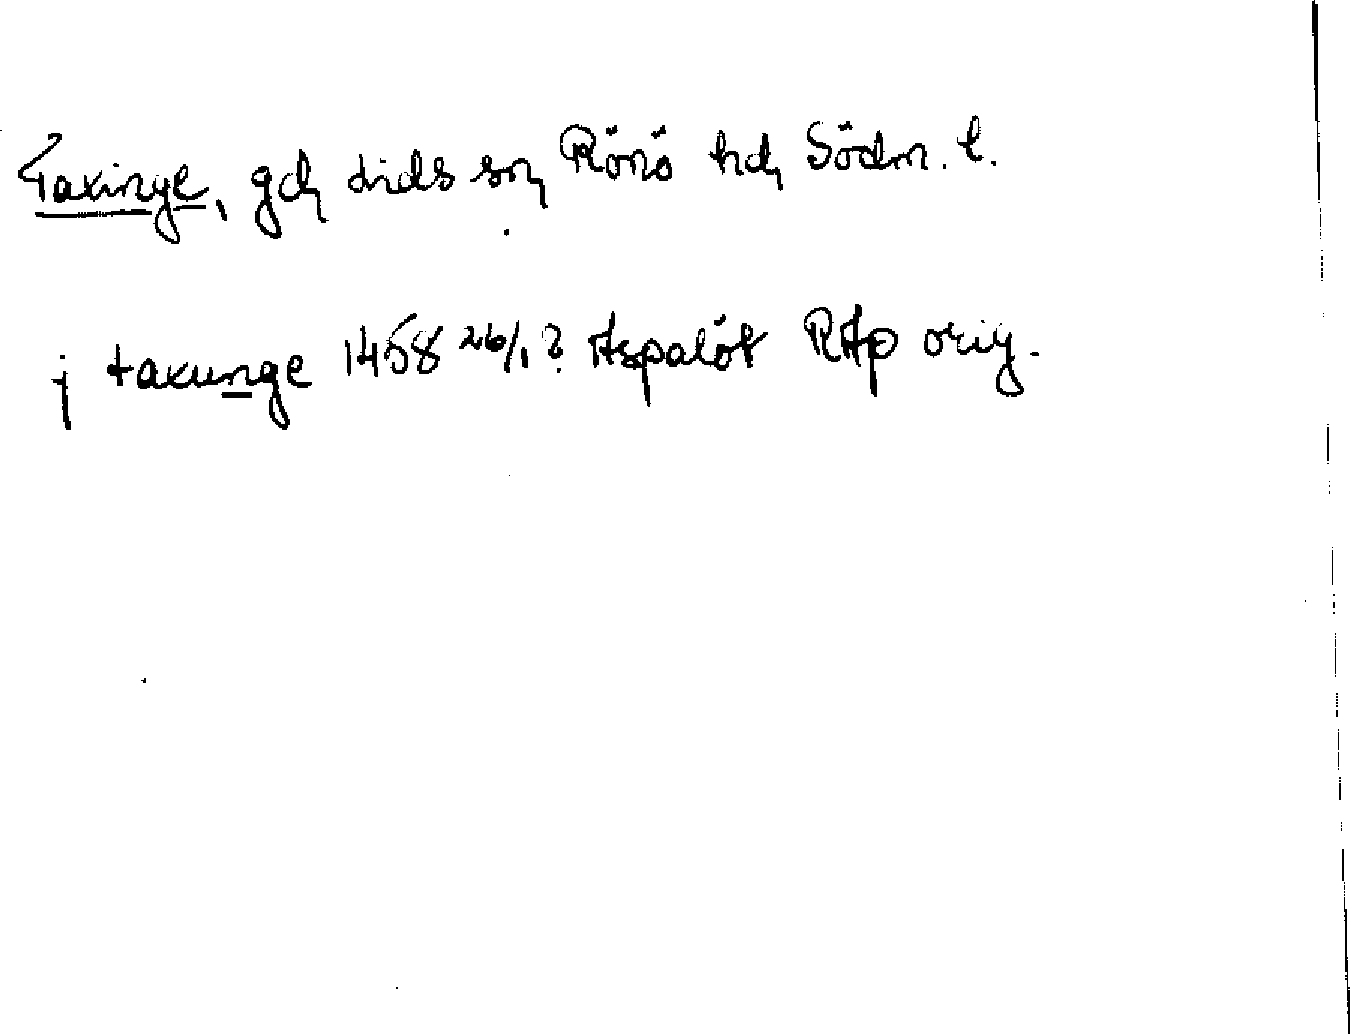 Taxinge, gd, dids sn, Rönö hd, Södm. l.
j taxunge 1458 26/1? Aspalöt RAp orig.